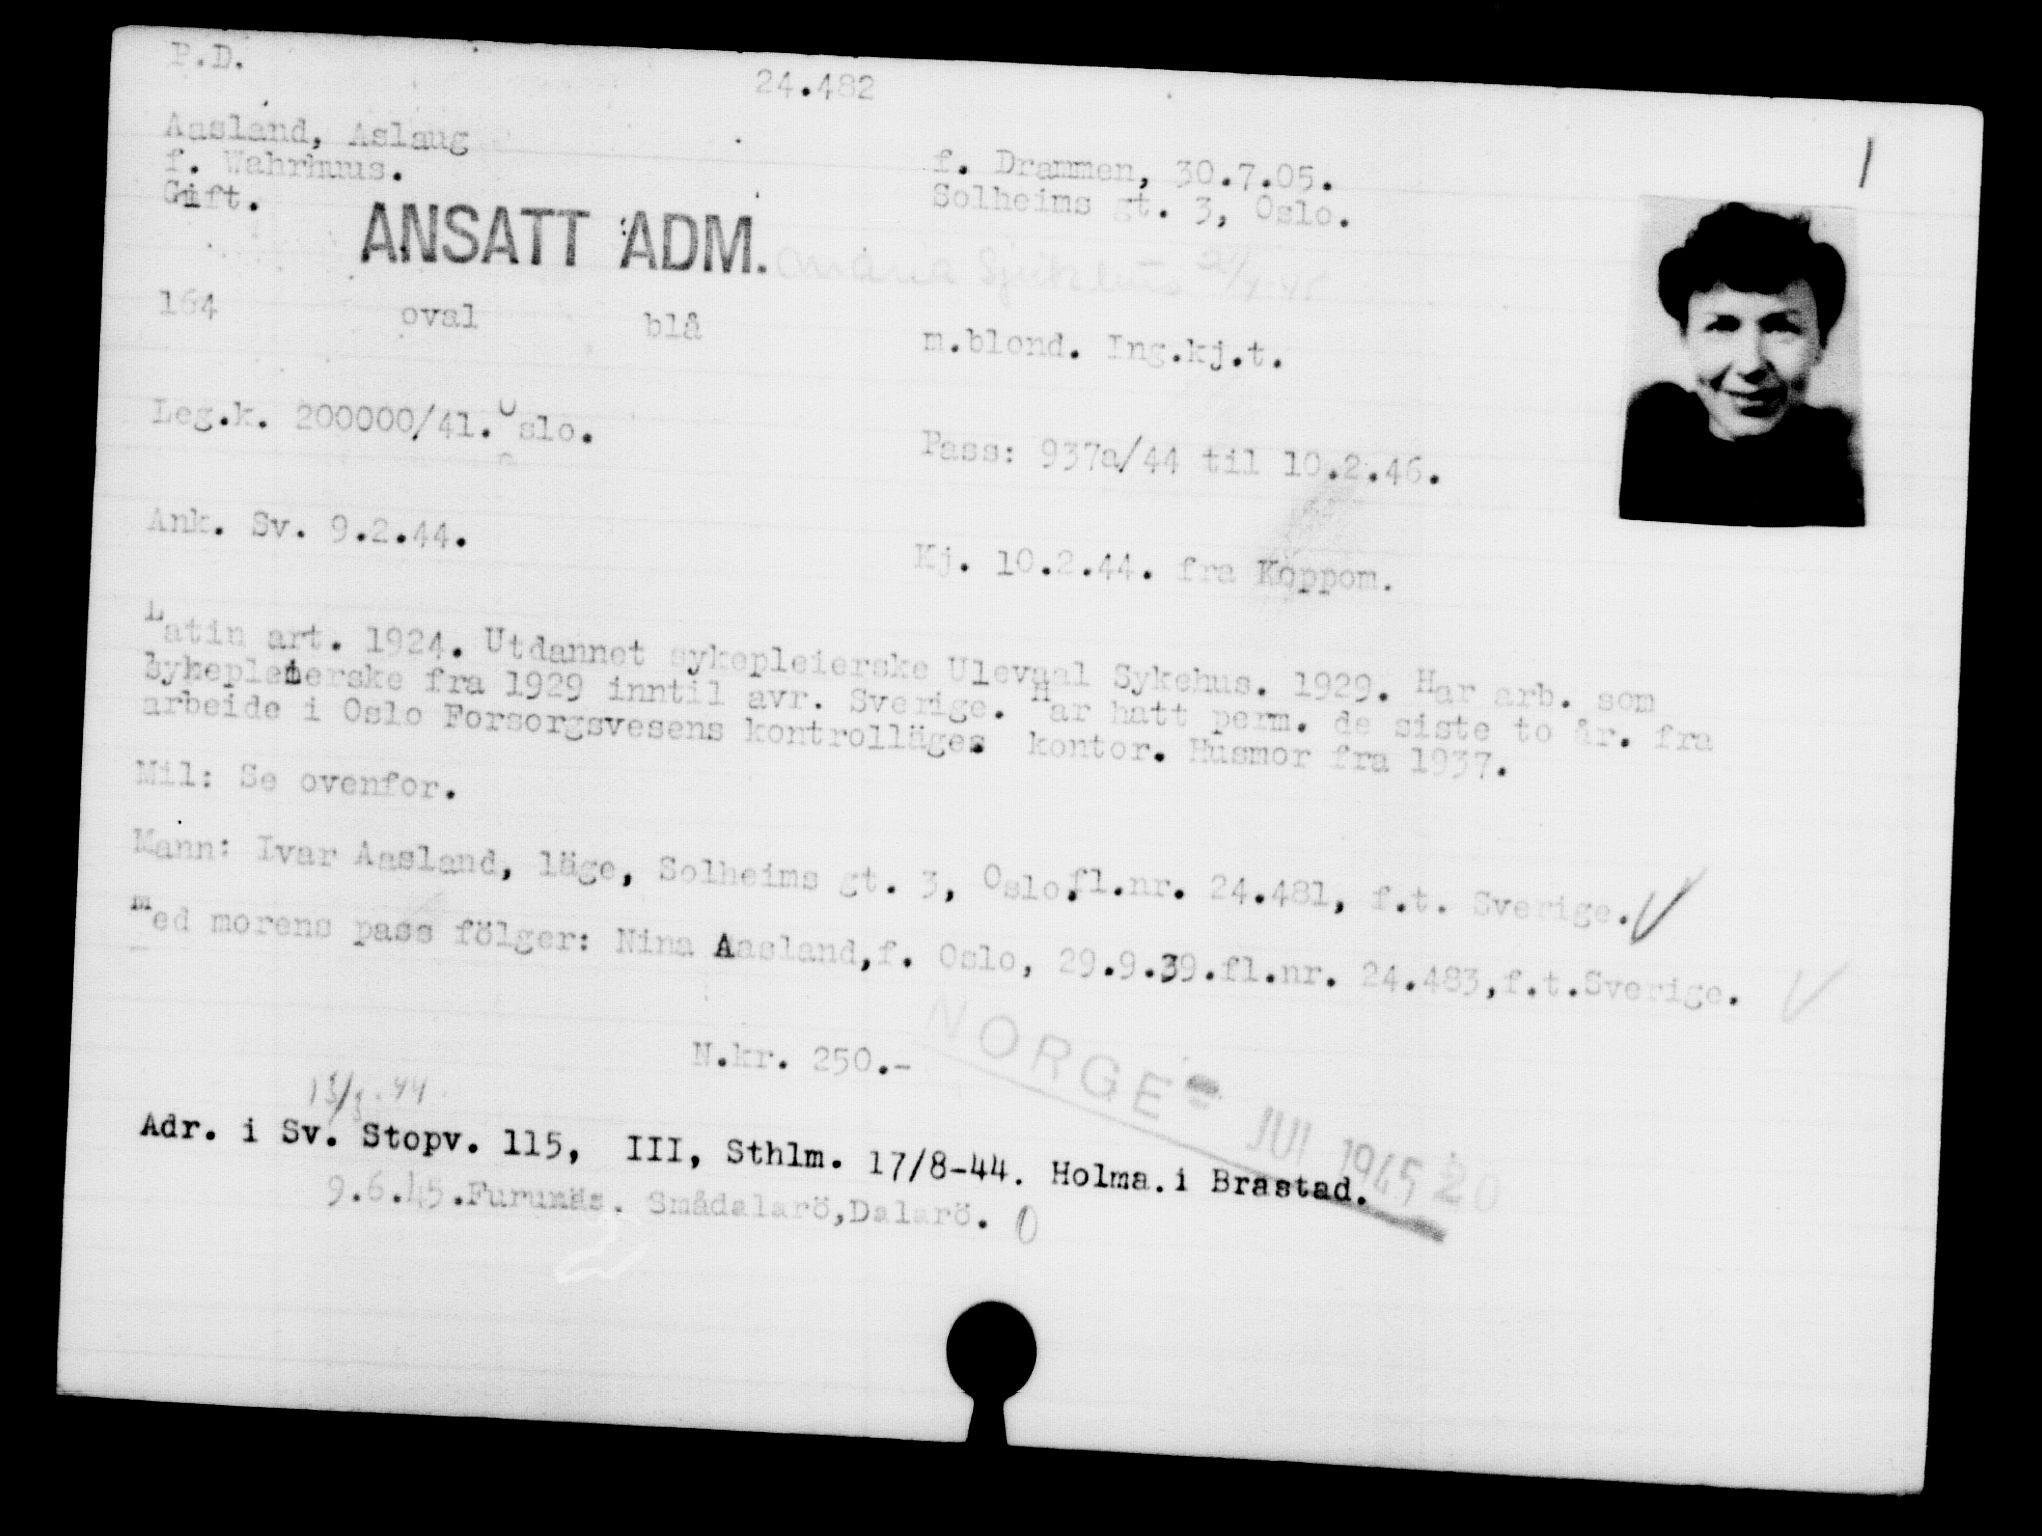 P.D.
24.482
Aasland, Aslaug
f. Wahrhuus.
Gift.
f. Drammen, 30.7.05.
Solheims gt. 3, Oslo.
ANSATT ADM.
164 oval blå m.blond. Ing.kj.t.
Leg.k. 200000/41. Oslo.
Pass: 937a/44 til 10.2.46.
Ank. Sv. 9.2.44.
Kj. 10.2.44. fra Köppom.
Latin art. 1924. Utdannet sykepleierske Ulevaal Sykehus. 1929. Har arb. som
sykepleierske fra 1929 inntil avr. Sverige. Har hatt perm. de siste to år. fra
arbeide i Oslo Forsorgsvesens kontrolläges kontor. Husmor fra 1937.
Mil: Se ovenfor.
Mann: Ivar Aasland, läge, Solheims gt. 3, Oslo.fl.nr. 24.481, f.t. Sverige.
med morens pass fölger: Nina Aasland,f. Oslo, 29.9.39.fl.nr. 24.483,f.t.Sverige.
N.kr. 250.-
NORGE
JUI 1945
Adr. i Sv. Stopv. 115, III, Sthlm. 17/8-44. Holma.i Brastad.
9.6.45.Furunäs. Smådalarö,Dalarö.